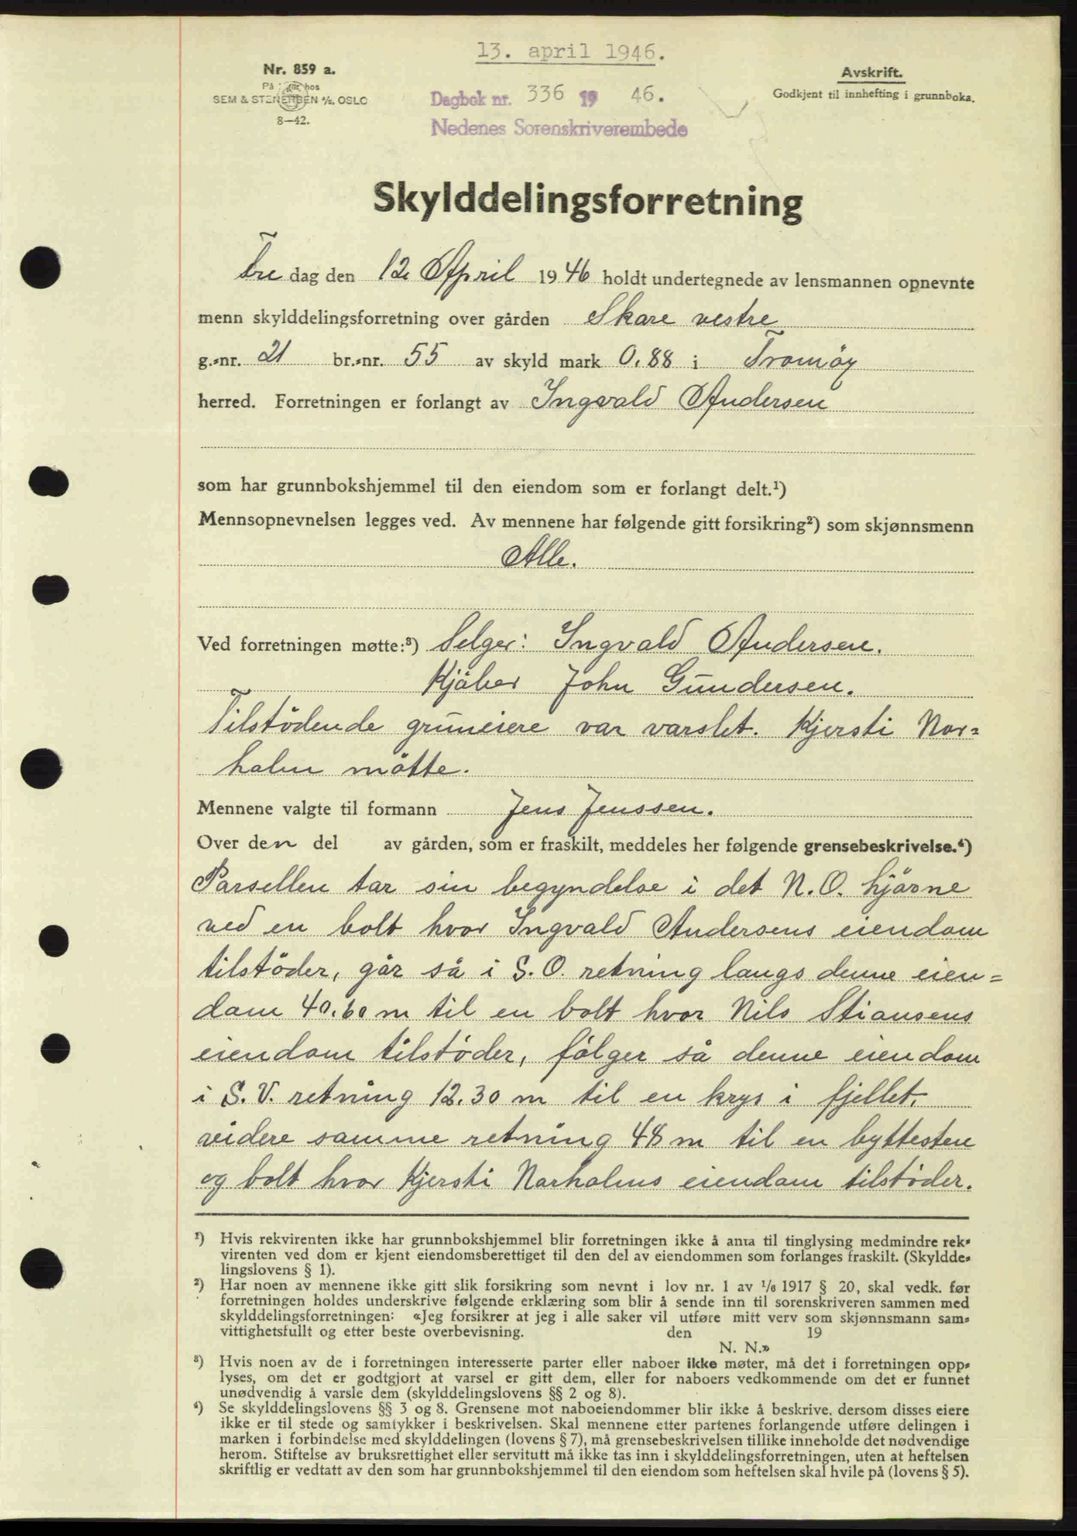 13. april 1946.
Nr. 859 a.
På lager hos
SEM & STENERSEN A/S, OSLO
8—42.
Dagbok nr. 336 19 46.
Nedenes Sorenskriverembede
Avskrift.
Godkjent til innhefting i grunnboka.
Skylddelingsforretning
Fre dag den 12 April 1946 holdt undertegnede av lensmannen opnevnte
menn skylddelingsforretning over gården Skare vestre
g.-nr. 21 br.-nr. 55 av skyld mark 0.88 i Tromøy
herred. Forretningen er forlangt av Ingvald Andersen
som har grunnbokshjemmel til den eiendom som er forlangt delt.¹)
Mennsopnevnelsen legges ved. Av mennene har følgende gitt forsikring²) som skjønnsmenn
Alle.
Ved forretningen møtte:³) Selger: Ingvald Andersen.
Kjøber John Gundersen.
Tilstödende gruneiere var varslet. Kjersti Nor=
holm mötte.
Mennene valgte til formann Jens Jenssen.
Over den del av gården, som er fraskilt, meddeles her følgende grensebeskrivelse.⁴)
Parsellen tar sin begyndelse i det N.O. hjörne
ved en bolt hvor Ingvald Andersens eiendom
tilstöder, går så i S.O. retning langs denne eien=
dom 40.60 m til en bolt hvor Nils Stiansens
eiendom tilstöder, fölger så denne eiendom
i S.V. retning 12.30 m til en krys i fjellet,
videre samme retning 48 m til en byttesten
og bolt hvor Kjersti Norholms eiendom tilstöder.
¹) Hvis rekvirenten ikke har grunnbokshjemmel blir forretningen ikke å anta til tinglysing medmindre rek-
virenten ved dom er kjent eiendomsberettiget til den del av eiendommen som forlanges fraskilt. (Skyldde-
lingslovens § 1).
²) Har noen av mennene ikke gitt slik forsikring som nevnt i lov nr. 1 av 1/6 1917 § 20, skal vedk. før
forretningen holdes underskrive følgende erklæring som blir å sende inn til sorenskriveren sammen med
skylddelingsforretningen: «Jeg forsikrer at jeg i alle saker vil utføre mitt verv som skjønnsmann sam-
vittighetsfullt og etter beste overbevisning. den 19
N. N.»
³) Hvis noen av de i forretningen interesserte parter eller naboer ikke møter, må det i forretningen opp-
lyses, om det er godtgjort at varsel er gitt dem, eller for naboers vedkommende om det er funnet
unødvendig å varsle dem (skylddelingslovens §§ 2 og 8).
⁴) Se skylddelingslovens §§ 3 og 8. Grensene mot naboeiendommer blir ikke å beskrive, dersom disses eiere
ikke er til stede og samtykker i beskrivelsen. Skal mennene etter partenes forlangende utføre delingen i
marken i forbindelse med skylddelingen (lovens § 7), må grensebeskrivelsen tillike inneholde det nødvendige
herom. Stiftelse av bruksrettighet eller servitutt må ikke tas inn i skylddelingsforretningen, uten at heftelsen
skriftlig er vedtatt av den som har grunnbokshjemmel til den eiendom som heftelsen skal hvile på (lovens § 5).